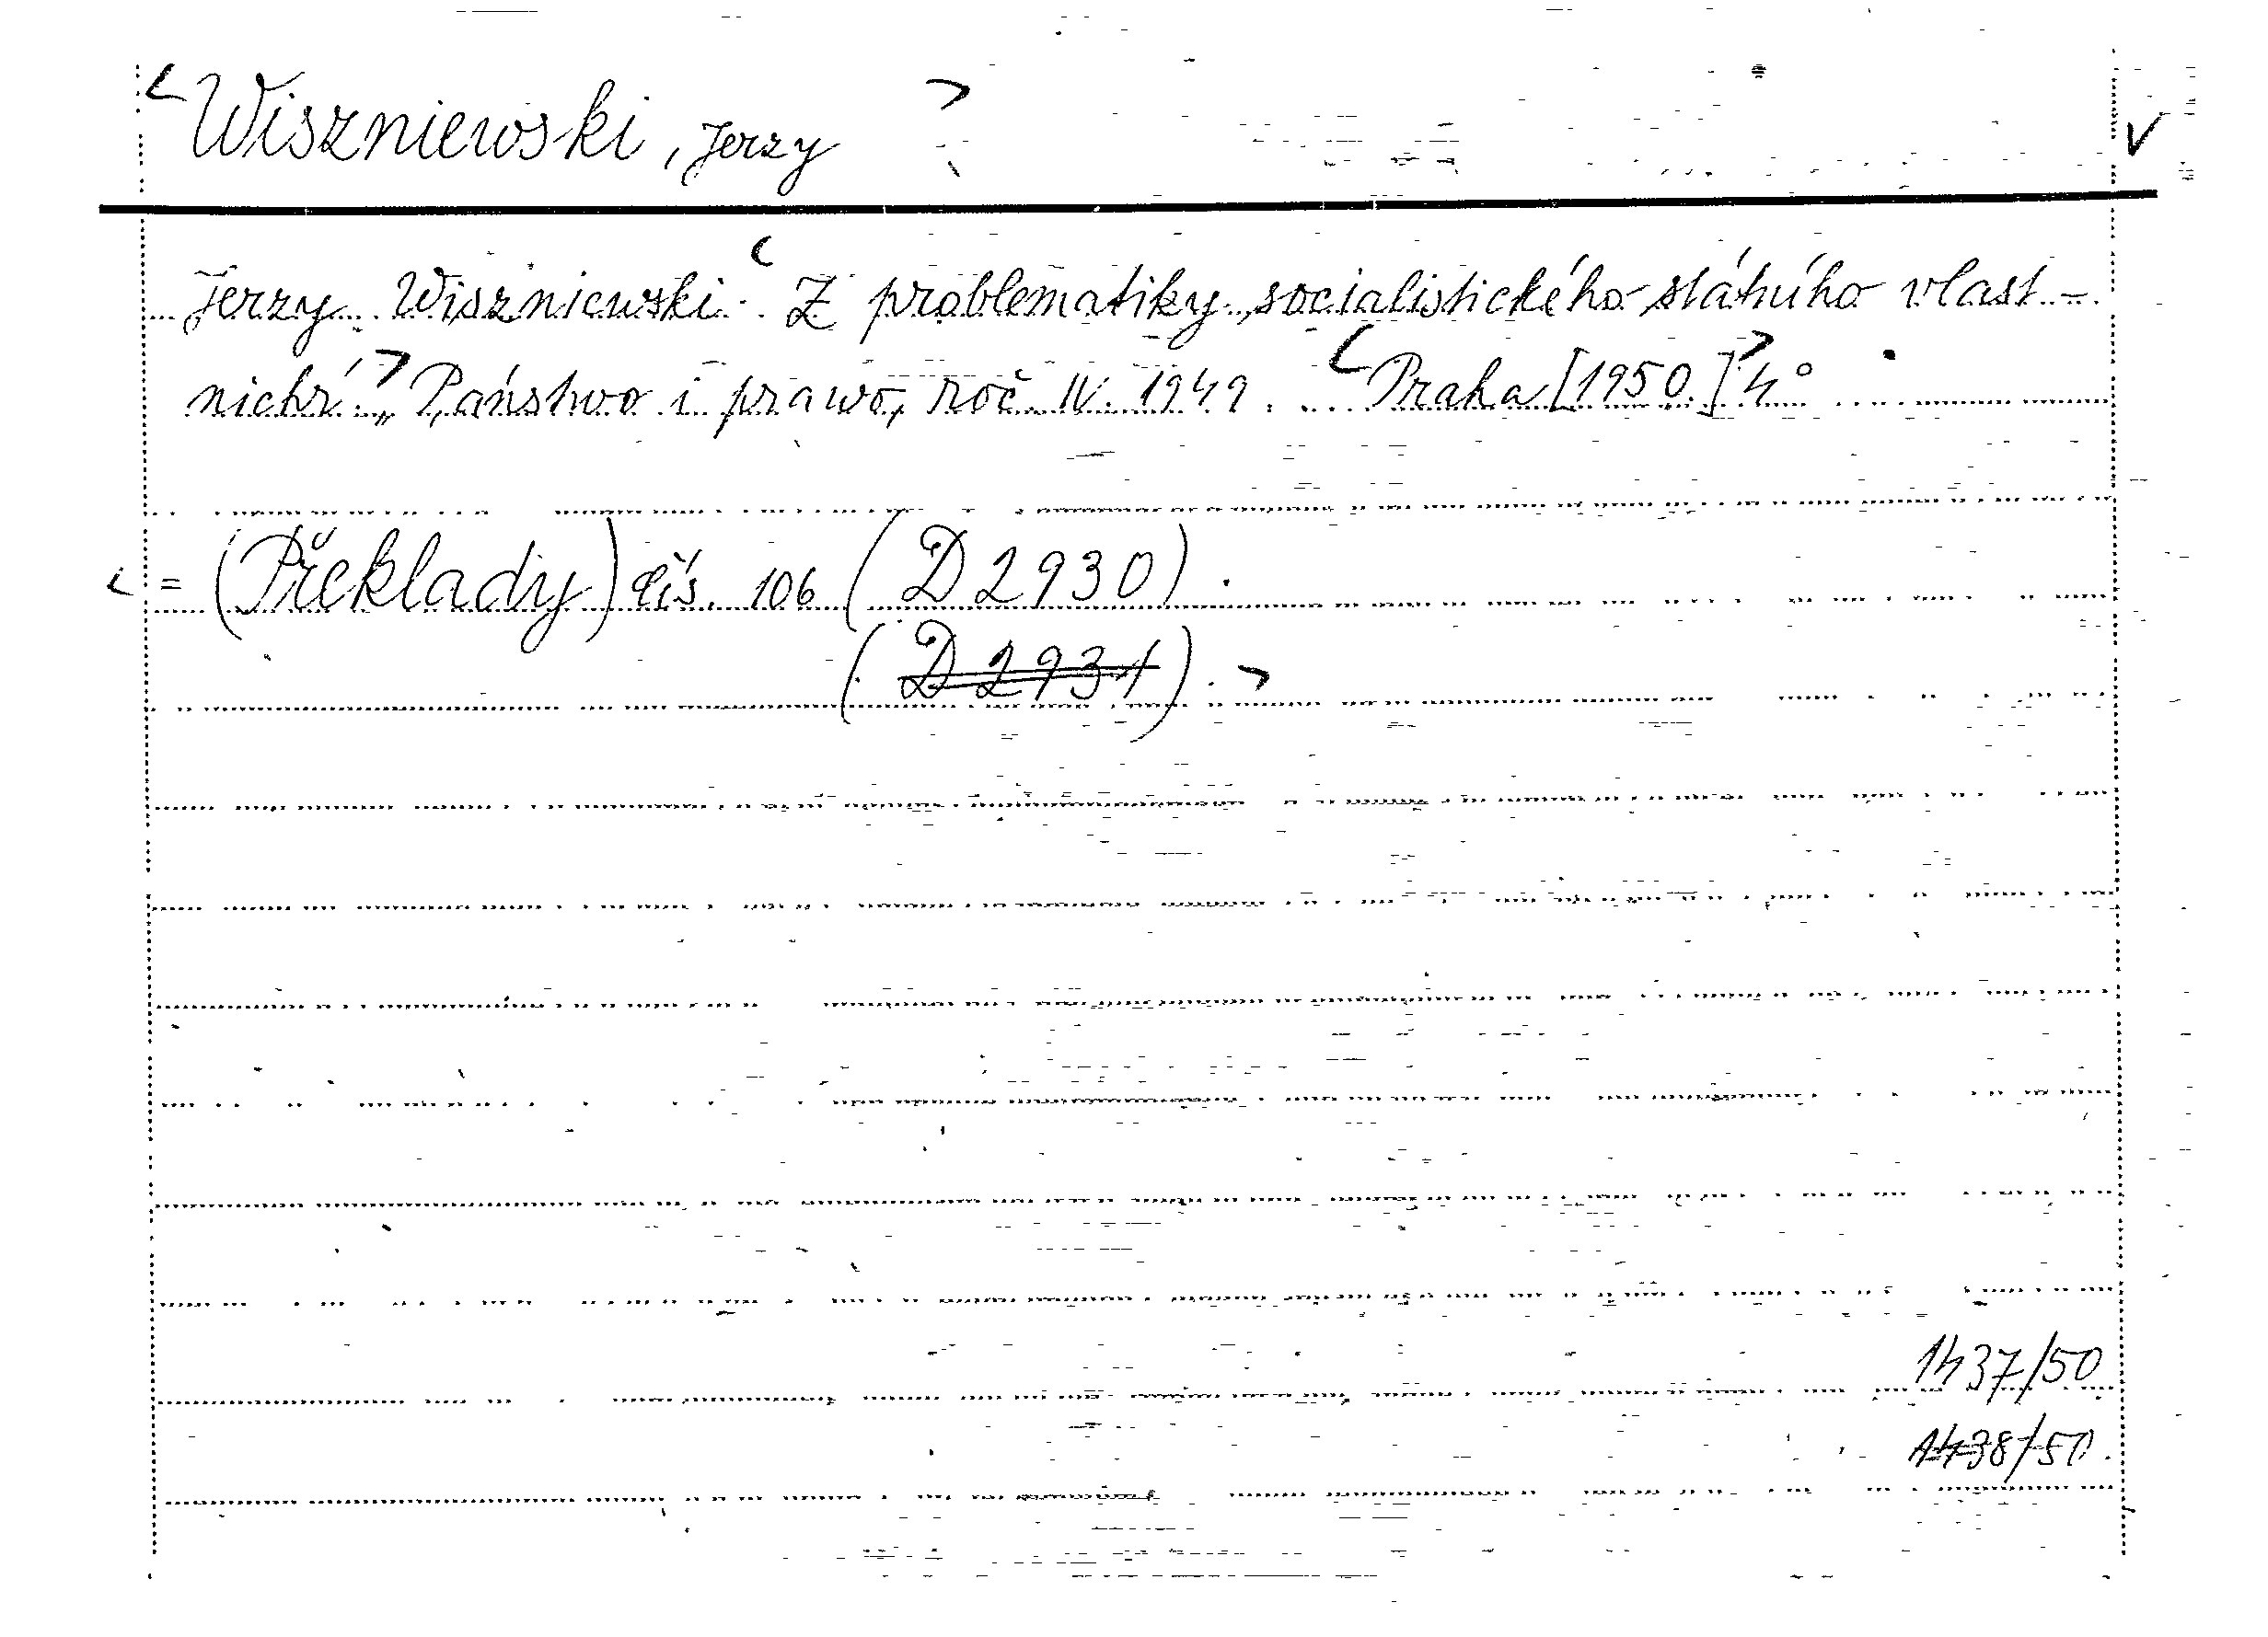 Wiszniewski, Jerzy
Jerzy Wiszniewski: Z problematiky socialistického státního vlast-
nictví. „Państwo i prawo, roč. IV. 1949. Praha [1950.] 4°
= (Překlady) čís. 106 (D 2930).
(D 2931).
1437/50
1438/50.